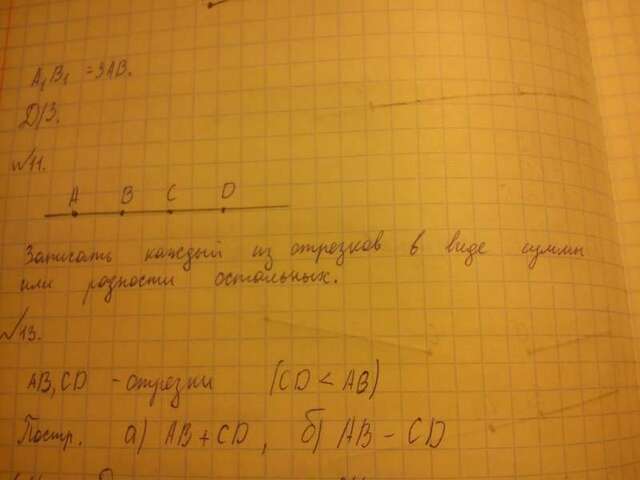 A₁B₁ = 3AB.
Д/З.
№11.
A B C D
Записать каждый из отрезков в виде суммы
или разности остальных.
№13.
AB, CD - отрезки (CD < AB)
Постр. а) AB + CD, б) AB - CD